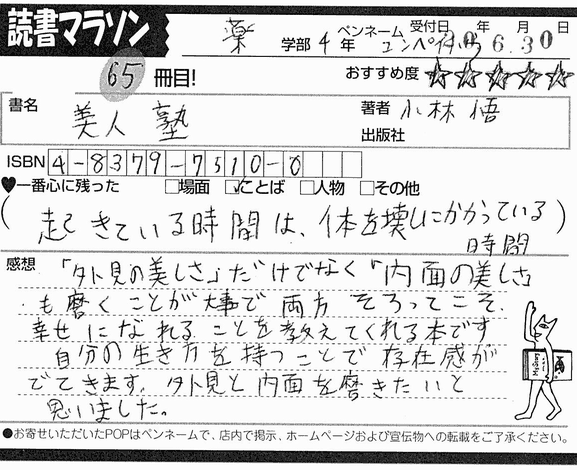 読書マラソン
薬 学部 4 年 ペンネーム 受付日 年 月 日
6. 30
65 冊目! おすすめ度 ☆☆☆☆☆
書名 美人 塾 著者 小林 悟
出版社
ISBN 4-8379-7510-0
♥一番心に残った □場面 ☑ことば □人物 □その他
(起きている時間は、体を壊しにかかっている時間)
感想 「外見の美しさ」だけでなく「内面の美しさ
も磨くことが大事で両方そろってこそ、
幸せになれることを教えてくれる本です
自分の生き方を持つことで存在感が
でてきます。外見と内面を磨きたいと
思いました。
●お寄せいただいたPOPはペンネームで、店内で掲示、ホームページおよび宣伝物への転載をご了承ください。